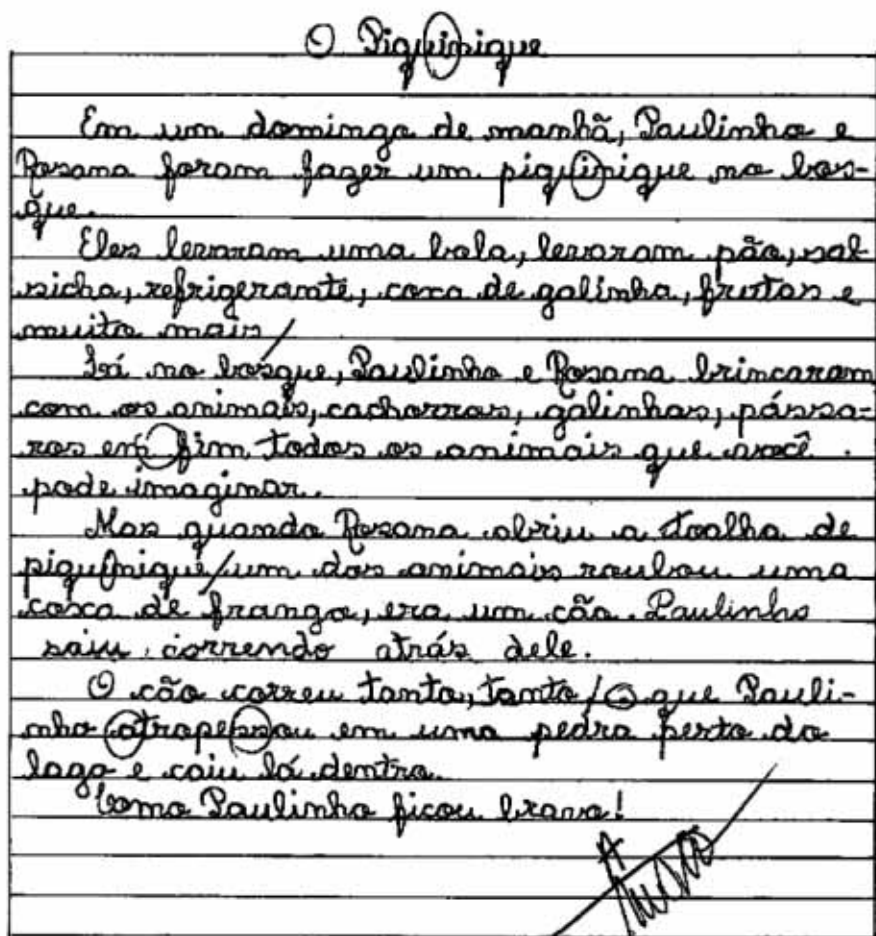 O Piquinique
Em um domingo de manhã, Paulinho e
Rosana foram fazer um piquinique no bos-
que.
Eles levaram uma bola, levaram pão, sal
sicha, refrigerante, coxa de galinha, frutas e
muito mais
Lá no bosque, Paulinho e Rosana brincaram
com os animais, cachorros, galinhas, pássa-
ros em fim todos os animais que você
pode imaginar.
Mas quando Rosana abriu a toalha de
piquinique um dos animais roubou uma
coxa de frango, era um cão. Paulinho
saiu correndo atrás dele.
O cão correu tanto, tanto / o que Pauli-
nho atropessou em uma pedra perto do
lago e caiu lá dentro.
Como Paulinho ficou bravo!